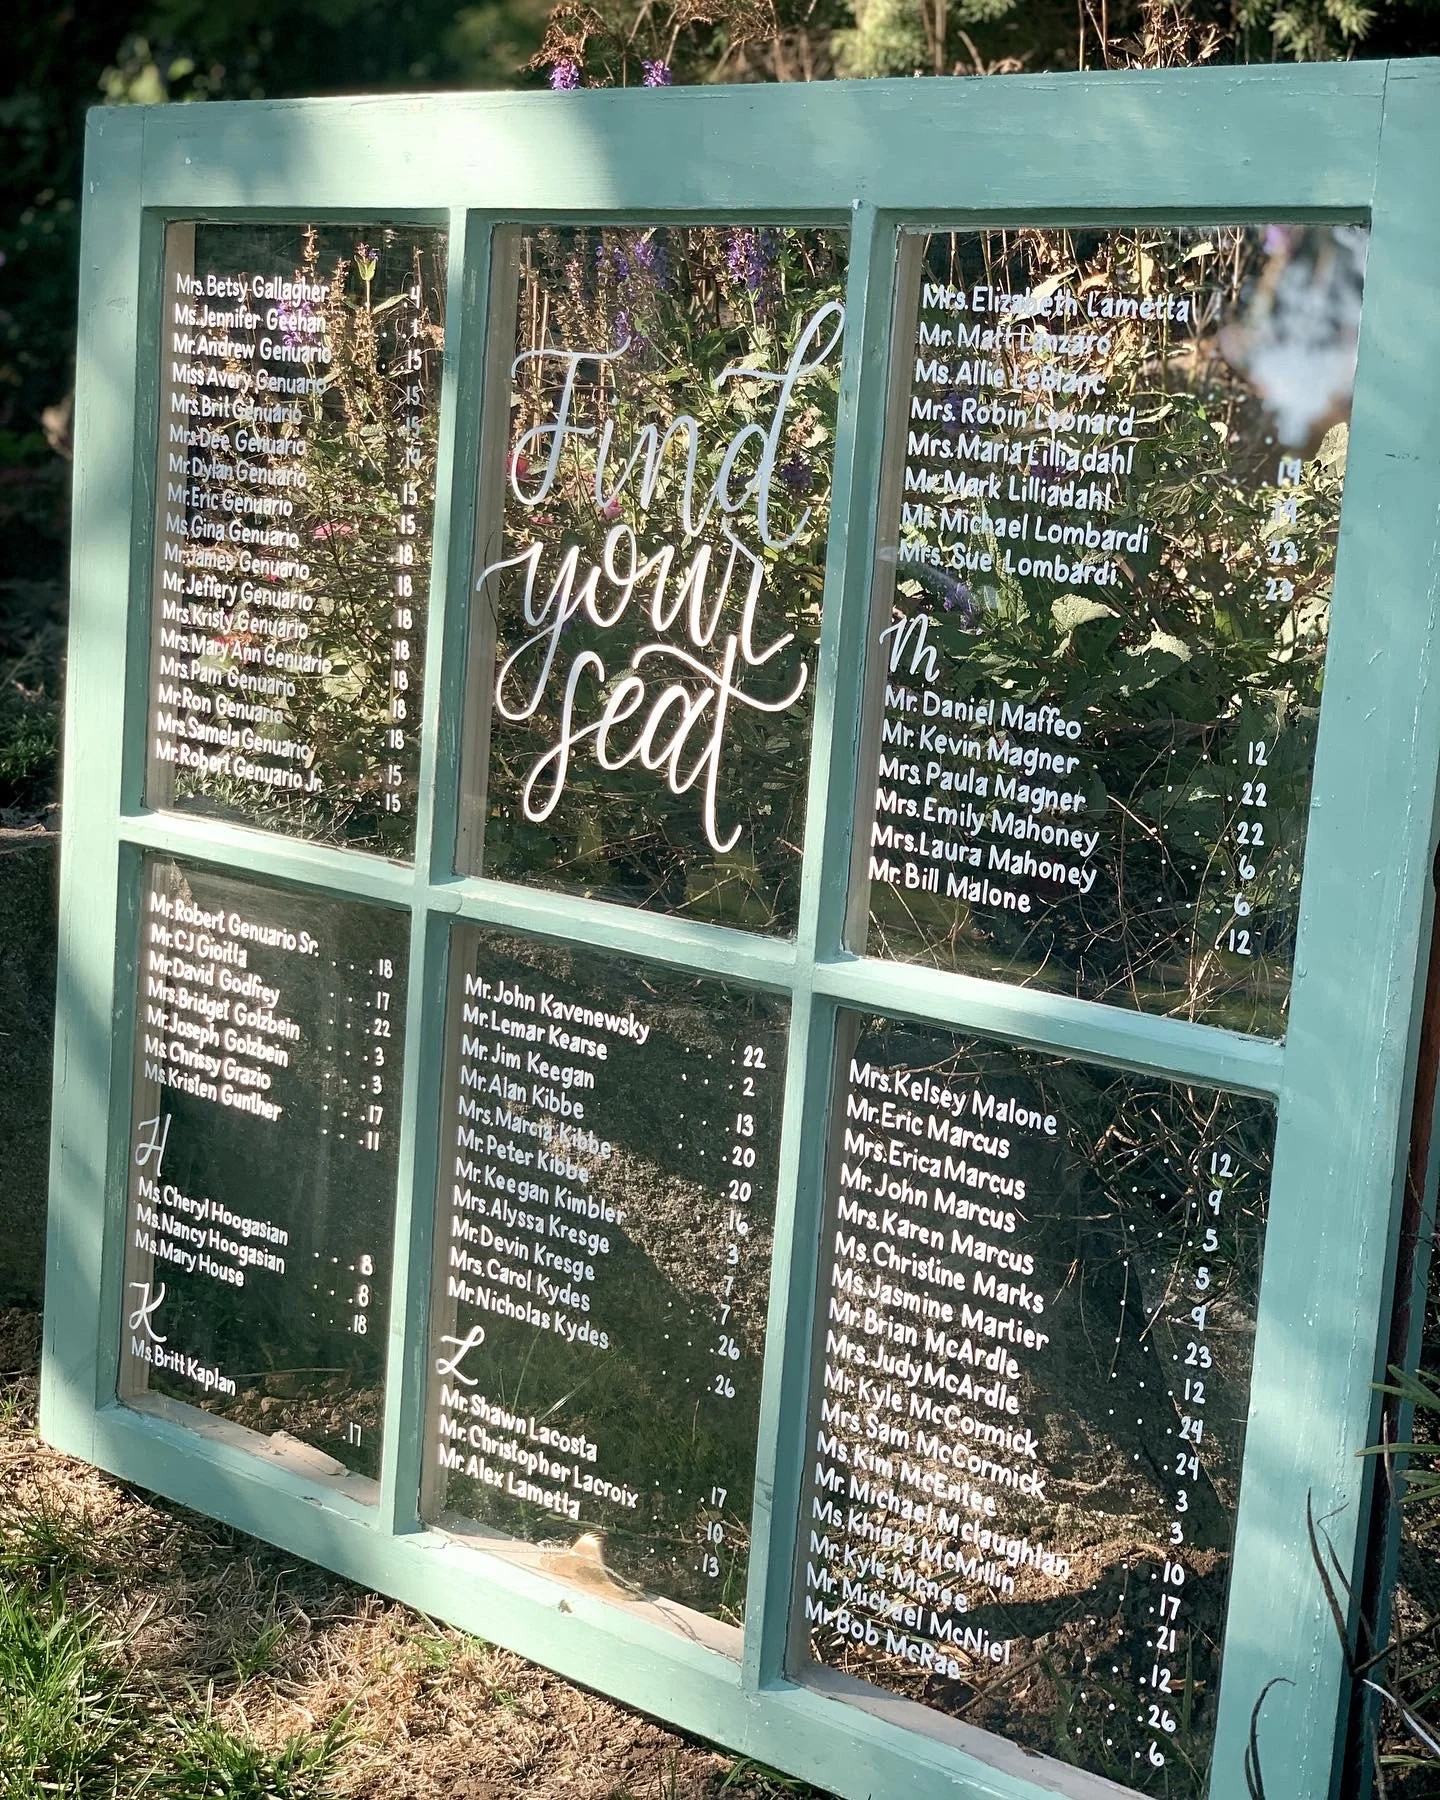 Mrs. Betsy Gallagher 4
Ms. Jennifer Geehan
Mr. Andrew Genuario 15
Miss Avery Genuario 15
Mrs. Brit Genuario 15
Mrs. Dee Genuario 19
Mr. Dylan Genuario 15
Mr. Eric Genuario 15
Ms. Gina Genuario 18
Mr. James Genuario 18
Mr. Jeffery Genuario 18
Mrs. Kristy Genuario 18
Mrs. Mary Ann Genuario 18
Mrs. Pam Genuario 18
Mr. Ron Genuario 18
Mrs. Samela Genuario 15
Mr. Robert Genuario Jr. 15
Mr. Robert Genuario Sr. 18
Mr. CJ Gioitta 17
Mr. David Godfrey 22
Mrs. Bridget Golzbein 3
Mr. Joseph Golzbein 3
Ms. Chrissy Grazio 17
Ms. Kristen Gunther 11
H
Ms. Cheryl Hoogasian 8
Ms. Nancy Hoogasian 8
Ms. Mary House 18
K
Ms. Britt Kaplan 17
Find
your
seat
Mr. John Kavenewsky 22
Mr. Lemar Kearse 2
Mr. Jim Keegan 13
Mr. Alan Kibbe 20
Mrs. Marcia Kibbe 20
Mr. Peter Kibbe 16
Mr. Keegan Kimbler 3
Mrs. Alyssa Kresge 7
Mr. Devin Kresge 7
Mrs. Carol Kydes 26
Mr. Nicholas Kydes 26
L
Mr. Shawn Lacosta 17
Mr. Christopher Lacroix 10
Mr. Alex Lametta 13
Mrs. Elizabeth Lametta
Mr. Matt Lanzaro
Ms. Allie LeBlanc
Mrs. Robin Leonard
Mrs. Maria Lilliadahl 19
Mr. Mark Lilliadahl 19
Mr. Michael Lombardi 23
Mrs. Sue Lombardi 23
M
Mr. Daniel Maffeo 12
Mr. Kevin Magner 22
Mrs. Paula Magner 22
Mrs. Emily Mahoney 6
Mrs. Laura Mahoney 6
Mr. Bill Malone 12
Mrs. Kelsey Malone 12
Mr. Eric Marcus 9
Mrs. Erica Marcus 5
Mr. John Marcus 5
Mrs. Karen Marcus 9
Ms. Christine Marks 23
Ms. Jasmine Martier 12
Mr. Brian McArdle 24
Mrs. Judy McArdle 24
Mr. Kyle McCormick 3
Mrs. Sam McCormick 3
Ms. Kim McEntee 10
Mr. Michael Mclaughlan 17
Ms. Khiara McMillin 21
Mr. Kyle Mcnee 12
Mr. Michael McNiel 26
Mr. Bob McRae 6